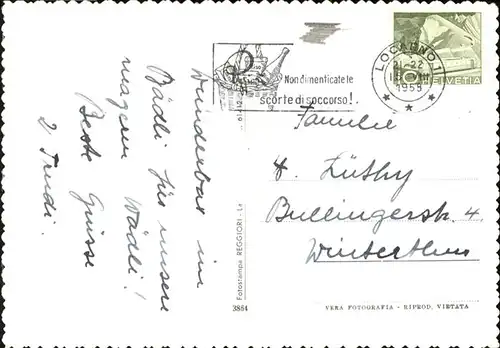 Wunderbar im
Bädli für unsere
magern Wädli!
Beste Grüsse
2 Trudi.
Non dimenticate le
scorte di soccorso!
LOCARNO 1
1959
HELVETIA
Familie
H. Lüthy
Bullingerstr. 4
Winterthur
Fotostampa REGGIORI - Lo
3864
VERA FOTOGRAFIA - RIPROD. VIETATA